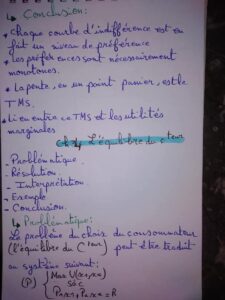 Conclusion:
* Chaque courbe d'indifférence est en
fait un niveau de préférence
* les préférences sont nécessairement
monotones.
* La pente, en un point panier, est le
TMS.
* Lien entre ce TMS et les utilités
marginales
ch 4 L'équilibre du cteur
- Problématique.
- Résolution.
- Interprétation
- Exemple
- Conclusion.
Problématique:
Le problème du choix du consommateur
(l'équilibre du Cteur) peut être traduit
au système suivant:
(P) { Max U(x1, x2)
S à c
P1x1 + P2x2 = R